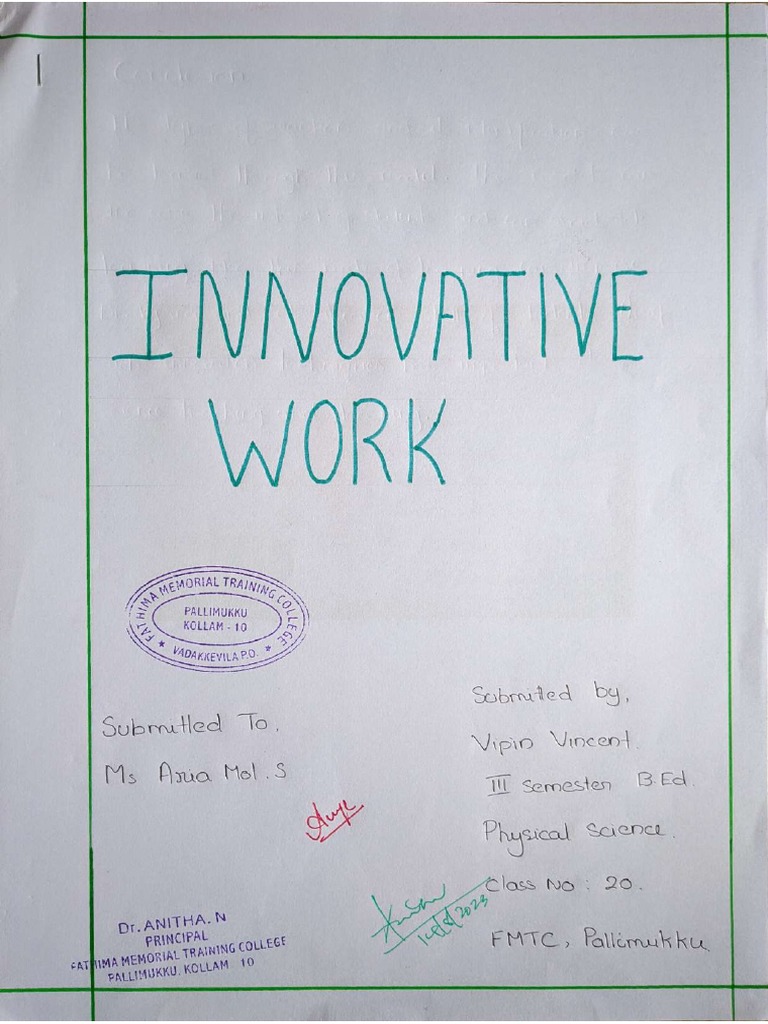 INNOVATIVE
WORK
FATHIMA MEMORIAL TRAINING COLLEGE
PALLIMUKKU
KOLLAM - 10
★ VADAKKEVILA P.O. ★
Submitted To,
Ms Arya Mol. S
Submitted by,
Vipin Vincent.
III Semester B.Ed.
Physical Science.
Class No : 20.
FMTC, Pallimukku
Dr. ANITHA. N
PRINCIPAL
FATHIMA MEMORIAL TRAINING COLLEGE
PALLIMUKKU, KOLLAM - 10